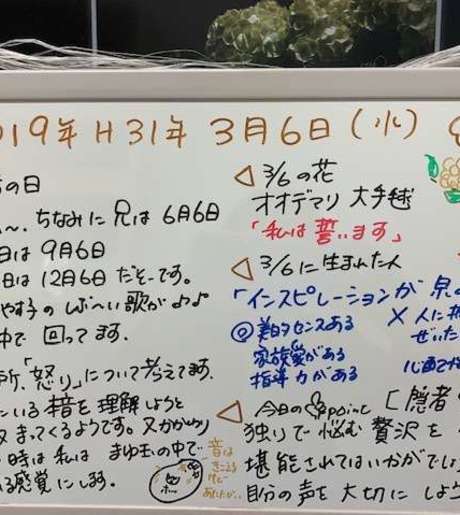 019年 H31年 3月6日(水)
の日
〜. ちなみに 兄は 6月6日
日は 9月6日
日は 12月6日 だそーです。
中で 回ってます.
所、「怒り」について考えてます.
ている 音を 理解しようと
まってくるようです。
時は 私は まゆ玉の中で
る感覚にします。
音は
きこえる
けど
◁ 3/6 の花
オオデマリ 大手毬
「私は 誓います」
◁ 3/6に生まれた人
「インスピレーションが 泉
◎ 美的センスある
家族愛がある
指導力がある
× 人に
ぜいた
◁ 今日の point [隠者
独りで悩む 贅沢を
堪能されてはいかがでし
自分の声を 大切に しよう